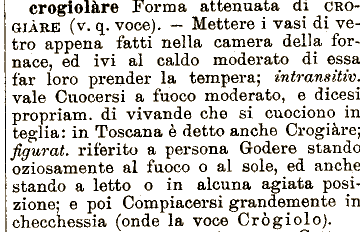 crogiolàre Forma attenuata di CRO-
GIÀRE (v. q. voce). — Mettere i vasi di ve-
tro appena fatti nella camera della for-
nace, ed ivi al caldo moderato di essa
far loro prender la tempera; intransitiv.
vale Cuocersi a fuoco moderato, e dicesi
propriam. di vivande che si cuociono in
teglia: in Toscana è detto anche Crogiàre;
figurat. riferito a persona Godere stando
oziosamente al fuoco o al sole, ed anche
stando a letto o in alcuna agiata posi-
zione; e poi Compiacersi grandemente in
checchessia (onde la voce Crògiolo).